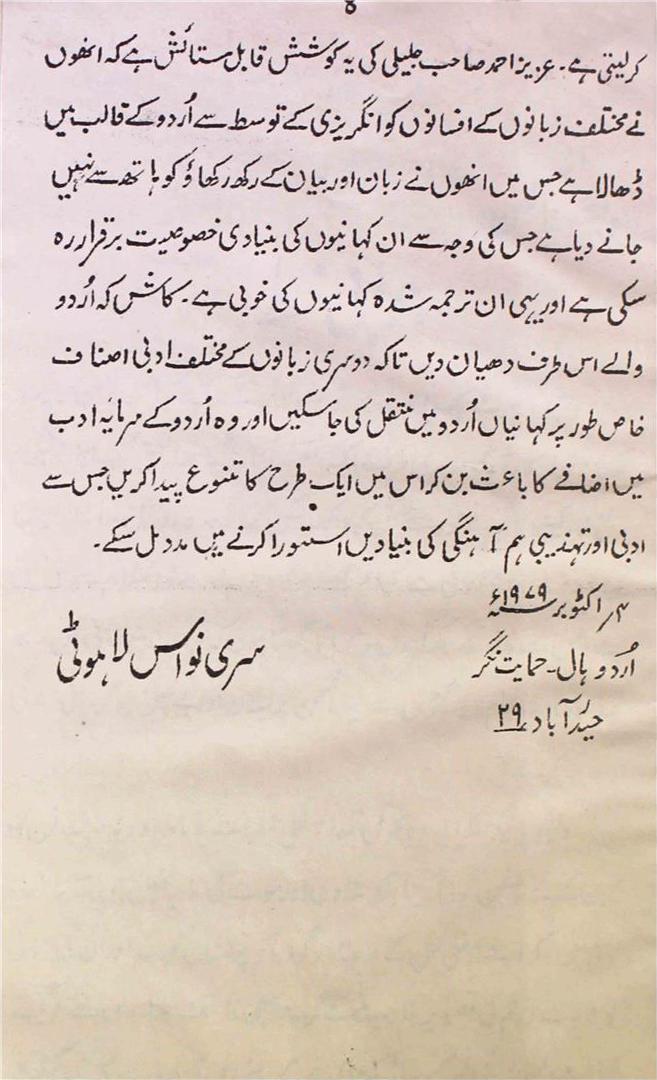 8
کرلیتی ہے۔ عزیز احمد صاحب جلیلی کی یہ کوشش قابل ستائش ہے کہ انھوں
نے مختلف زبانوں کے افسانوں کو انگریزی کے توسط سے اُردو کے قالب میں
ڈھالا ہے جس میں انھوں نے زبان اور بیان کے رکھ رکھاؤ کو ہاتھ سے نہیں
جانے دیا ہے جس کی وجہ سے ان کہانیوں کی بنیادی خصوصیت برقرار رہ
سکی ہے اور یہی ان ترجمہ شدہ کہانیوں کی خوبی ہے۔ کاش کہ اُردو
والے اس طرف دھیان دیں تاکہ دوسری زبانوں کے مختلف ادبی اصناف
خاص طور پر کہانیاں اُردو میں منتقل کی جاسکیں اور وہ اُردو کے سرمایہ ادب
میں اضافے کا باعث بن کر اس میں ایک طرح کا تنوع پیدا کریں جس سے
ادبی اور تہذیبی ہم آہنگی کی بنیادیں استوار کرنے میں مدد مل سکے۔
۴؍ اکتوبر ۱۹۷۹ء
اُردو ہال۔ حمایت نگر
سری نواس لاہوٹی
حیدرآباد ۲۹